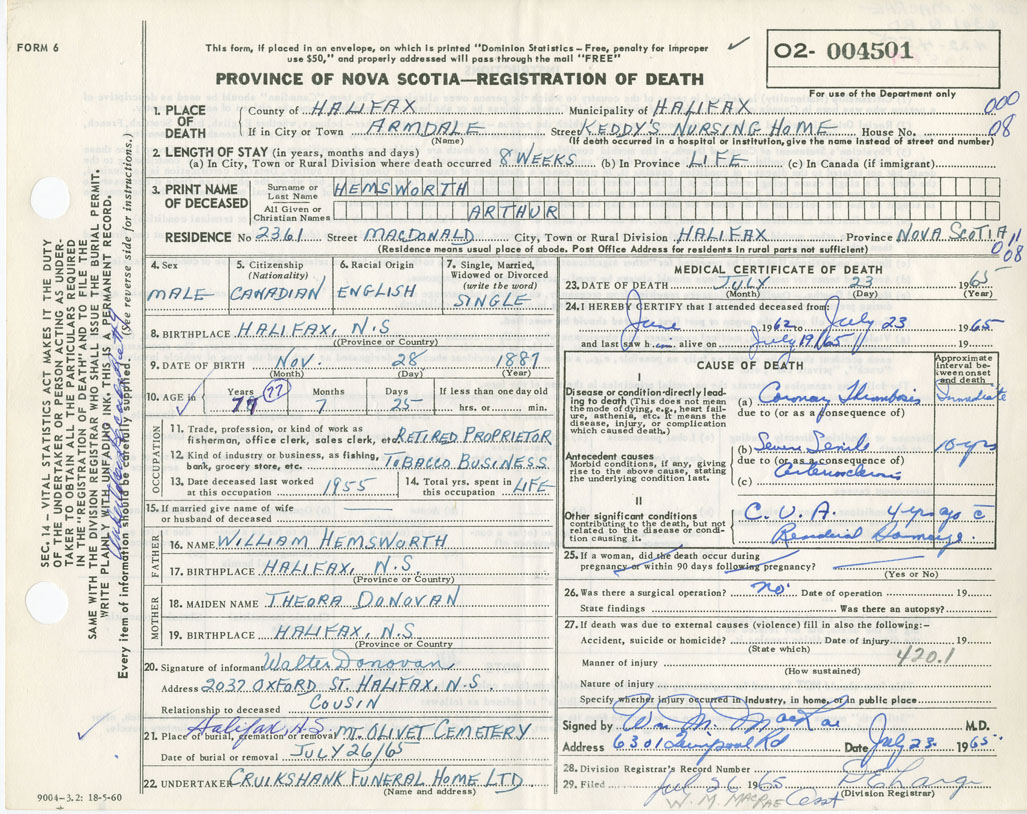 FORM 6
This form, if placed in an envelope, on which is printed "Dominion Statistics – Free, penalty for improper
use $50," and properly addressed will pass through the mail "FREE"
PROVINCE OF NOVA SCOTIA—REGISTRATION OF DEATH
O2- 004501
For use of the Department only
000
08
1. PLACE OF DEATH County of HALIFAX Municipality of HALIFAX
If in City or Town ARMDALE Street KEDDY'S NURSING HOME House No.
(Name) (If death occurred in a hospital or institution, give the name instead of street and number)
2. LENGTH OF STAY (in years, months and days)
(a) In City, Town or Rural Division where death occurred 8 WEEKS (b) In Province LIFE (c) In Canada (if immigrant)
3. PRINT NAME OF DECEASED Surname or Last Name HEMSWORTH
All Given or Christian Names ARTHUR
RESIDENCE No 2361 Street MACDONALD City, Town or Rural Division HALIFAX Province NOVA SCOTIA
(Residence means usual place of abode. Post Office Address for residents in rural parts not sufficient)
11
0 08
4. Sex MALE
5. Citizenship (Nationality) CANADIAN
6. Racial Origin ENGLISH
7. Single, Married, Widowed or Divorced (write the word) SINGLE
8. BIRTHPLACE HALIFAX, N.S
(Province or Country)
9. DATE OF BIRTH NOV. 28 1887
(Month) (Day) (Year)
10. AGE in Years 77 Months 7 Days 25 If less than one day old
hrs. or min.
OCCUPATION
11. Trade, profession, or kind of work as
fisherman, office clerk, sales clerk, etc. RETIRED PROPRIETOR
12. Kind of industry or business, as fishing,
bank, grocery store, etc. TOBACCO BUSINESS
13. Date deceased last worked at this occupation 1955
14. Total yrs. spent in this occupation LIFE
15. If married give name of wife
or husband of deceased
FATHER
16. NAME WILLIAM HEMSWORTH
17. BIRTHPLACE HALIFAX, N.S.
(Province or Country)
MOTHER
18. MAIDEN NAME THEORA DONOVAN
19. BIRTHPLACE HALIFAX, N.S
(Province or Country)
20. Signature of informant Walter Donovan
Address 2037 OXFORD ST. HALIFAX, N.S.
Relationship to deceased COUSIN
Halifax, N.S.
21. Place of burial, cremation or removal MT. OLIVET CEMETERY
Date of burial or removal JULY 26/65
22. UNDERTAKER CRUIKSHANK FUNERAL HOME LTD
(Name and address)
9004-3.2: 18-5-60
MEDICAL CERTIFICATE OF DEATH
23. DATE OF DEATH JULY 23 1965
(Month) (Day) (Year)
24. I HEREBY CERTIFY that I attended deceased from:
June 1962 to July 23 1965
and last saw him alive on July 19/65 19
CAUSE OF DEATH
Approximate interval between onset and death
I
Disease or condition directly leading to death (This does not mean the mode of dying, e.g., heart failure, asthenia, etc. It means the disease, injury, or complication which caused death.)
(a) Coronary Thrombosis Immediate
due to (or as a consequence of)
Antecedent causes
Morbid conditions, if any, giving rise to the above cause, stating the underlying condition last.
(b) Severe Senile 10 yrs
due to (or as a consequence of)
(c) Arteriosclerosis
II
Other significant conditions
contributing to the death, but not related to the disease or condition causing it.
C.V.A. 4 yrs ago c̄
Residual Damage.
25. If a woman, did the death occur during
pregnancy or within 90 days following pregnancy?
(Yes or No)
26. Was there a surgical operation? no. Date of operation 19
State findings Was there an autopsy?
27. If death was due to external causes (violence) fill in also the following:–
Accident, suicide or homicide? Date of injury 19
(State which)
420.1
Manner of injury
(How sustained)
Nature of injury
Specify whether injury occurred in industry, in home, or in public place
Signed by Wm. M. MacRae M.D.
Address 6301 Liverpool Rd Date July 23 1965
28. Division Registrar's Record Number
29. Filed July 26 1965
(Division Registrar)
W. M. MACRAE
SEC. 14 – VITAL STATISTICS ACT MAKES IT THE DUTY
OF THE UNDERTAKER OR PERSON ACTING AS UNDER-
TAKER TO OBTAIN ALL THE PARTICULARS REQUIRED
IN THE "REGISTRATION OF DEATH" AND TO FILE THE
SAME WITH THE DIVISION REGISTRAR WHO SHALL ISSUE THE BURIAL PERMIT.
WRITE PLAINLY WITH UNFADING INK. THIS IS A PERMANENT RECORD.
Every item of information should be carefully supplied. (See reverse side for instructions.)